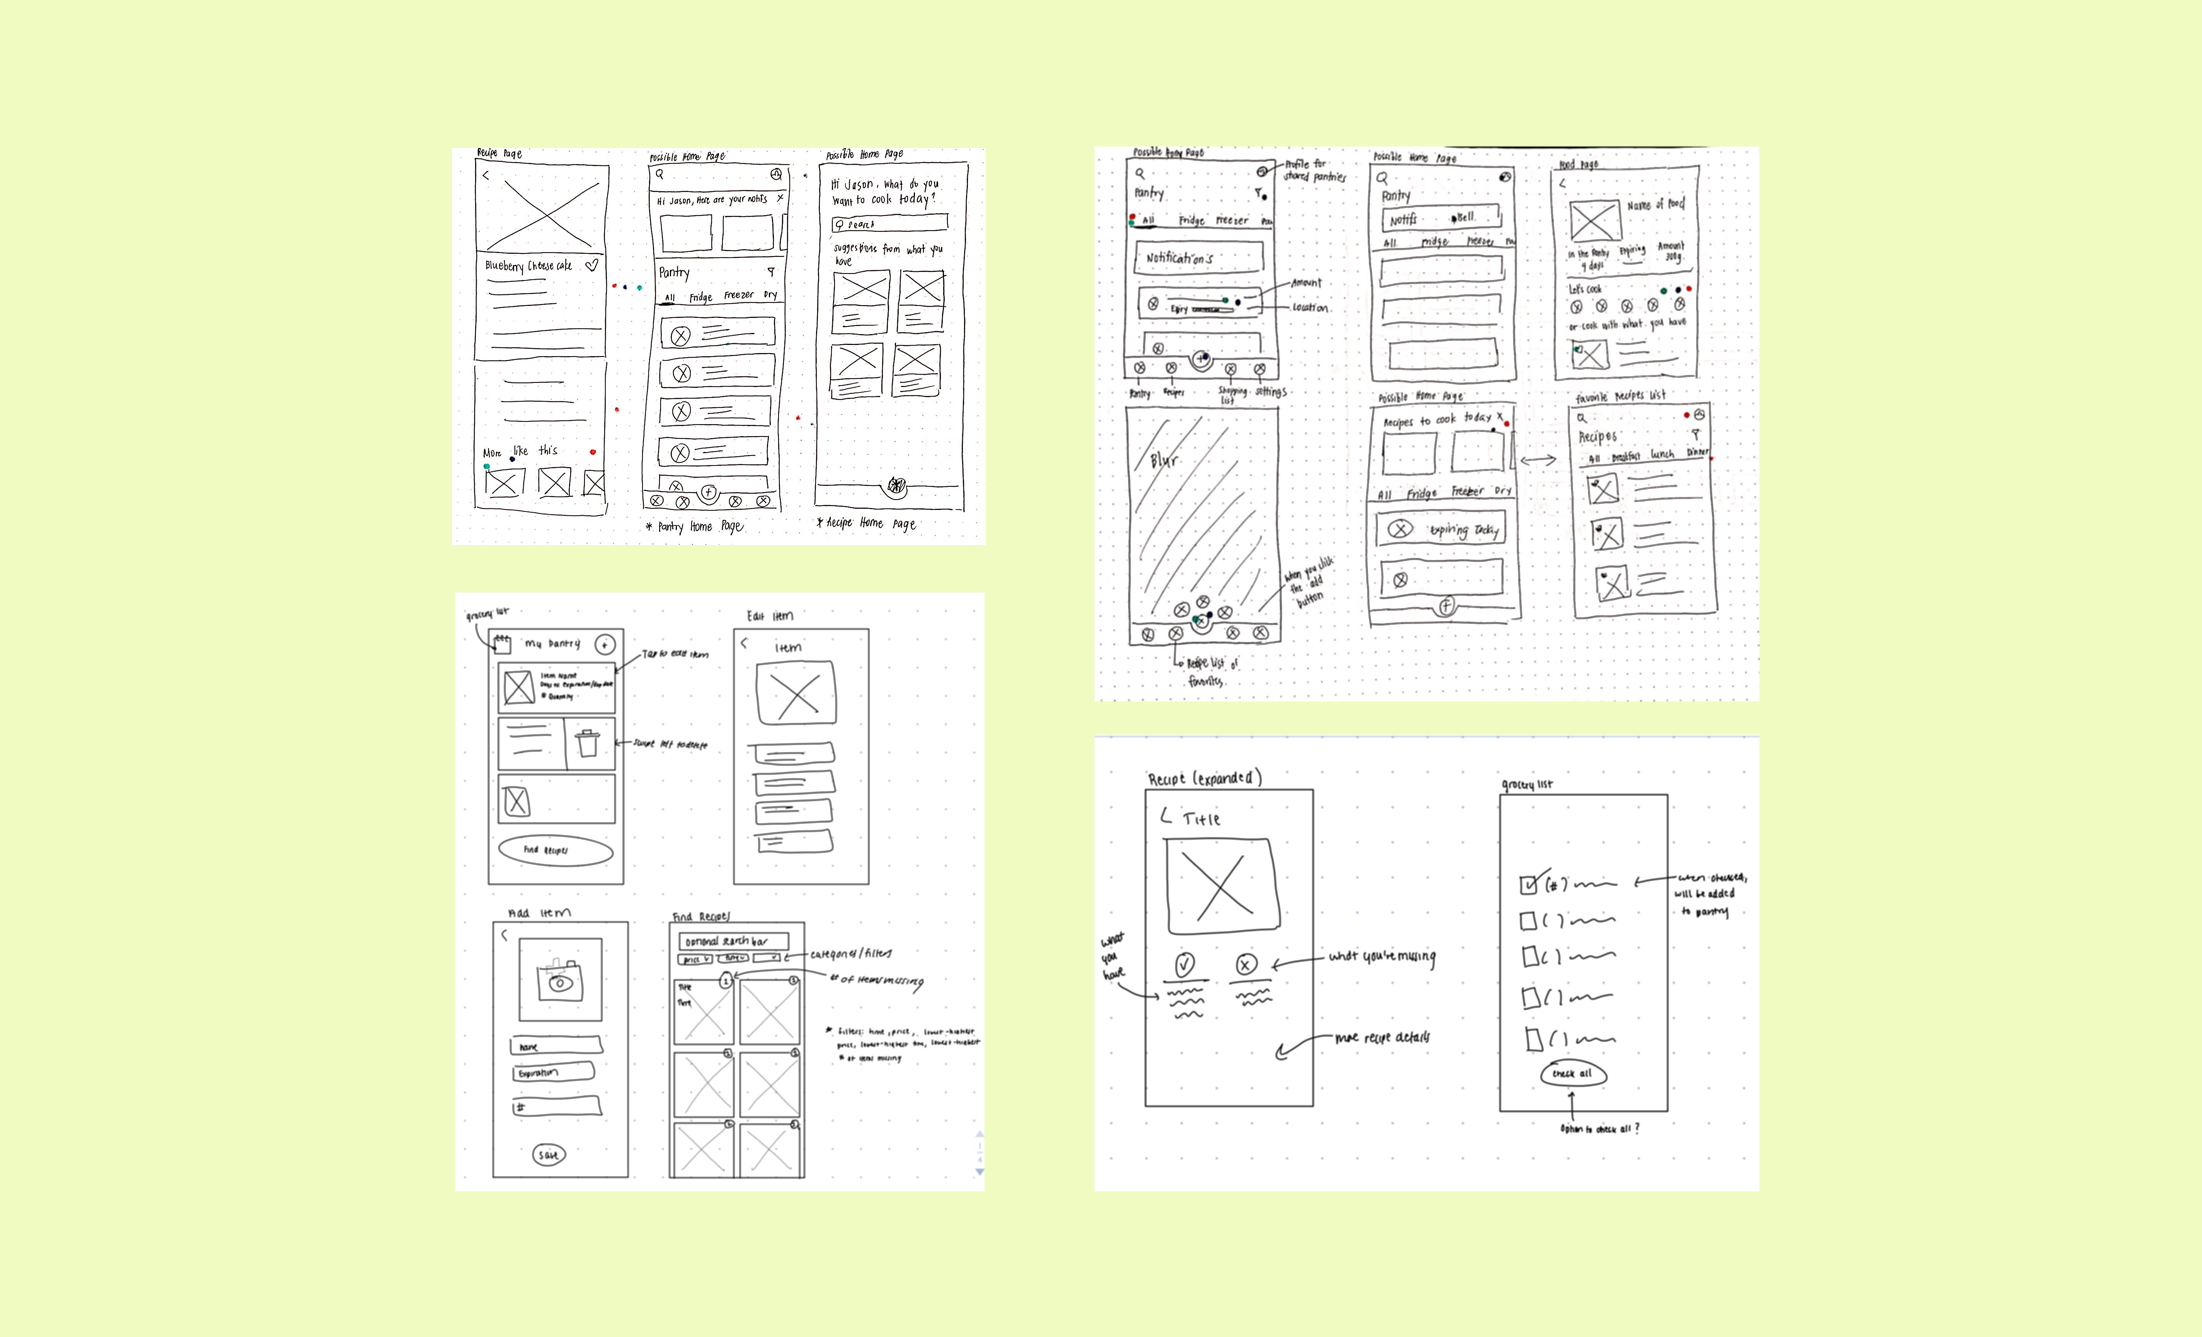 Recipe Page
Blueberry Cheese cake
More like this
Possible Home Page
Hi Jason, Here are your notifs X
Pantry
All Fridge Freezer Dry
* Pantry Home Page
Possible Home Page
Hi Jason, what do you
want to cook today?
search
suggestions from what you
have
* Recipe Home Page
Possible Home Page
Profile for
shared pantries
Pantry
All Fridge Freezer Pan
Notifications
Amount
Location
Pantry
Recipes
Shopping
list
settings
Blur
when you click
the add
button
Recipe list of
favorites
Possible Home Page
Pantry
Notifs Bell
All Fridge Freezer
Food Page
Name of Food
in the Pantry
9 days
Expiring
Amount
300g
Let's cook
or cook with what you have
Possible Home Page
Recipes to cook today x
All Fridge Freezer Dry
Expiring Today
Favorite Recipes List
Recipes
All Breakfast Lunch Dinner
grocery list
my pantry +
Item Name
Quantity
Tap to edit item
Swipe left to delete
Find Recipes
Edit Item
Item
Add Item
Name
Expiration
#
save
Find Recipes
optional search bar
price
time
categories/filters
# of items missing
Title
Time
* filters: time, price, lowest-highest
price, lowest-highest time, lowest-highest
# of items missing
Recipe (expanded)
Title
what
you
have
what you're missing
more recipe details
grocery list
(#)
when checked,
will be added
to pantry
check all
Option to check all?